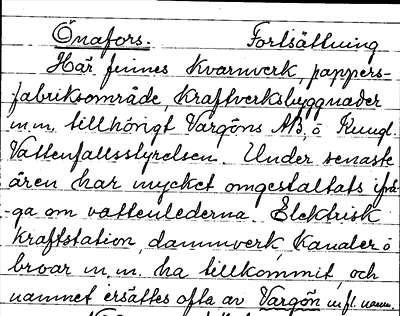 Önafors. Fortsättning
Här finnes kvarnverk, pappers-
fabriksområde, kraftverksbyggnader
m.m. tillhörigt Vargöns AB, o Kungl.
Vattenfallsstyrelsen. Under senaste
åren har mycket omgestaltats ifrå-
ga om vattenlederna. Elektrisk
kraftstation, dammverk, kanaler o
broar m.m. ha tillkommit, och
namnet ersättes ofta av Vargön m.fl. namn.